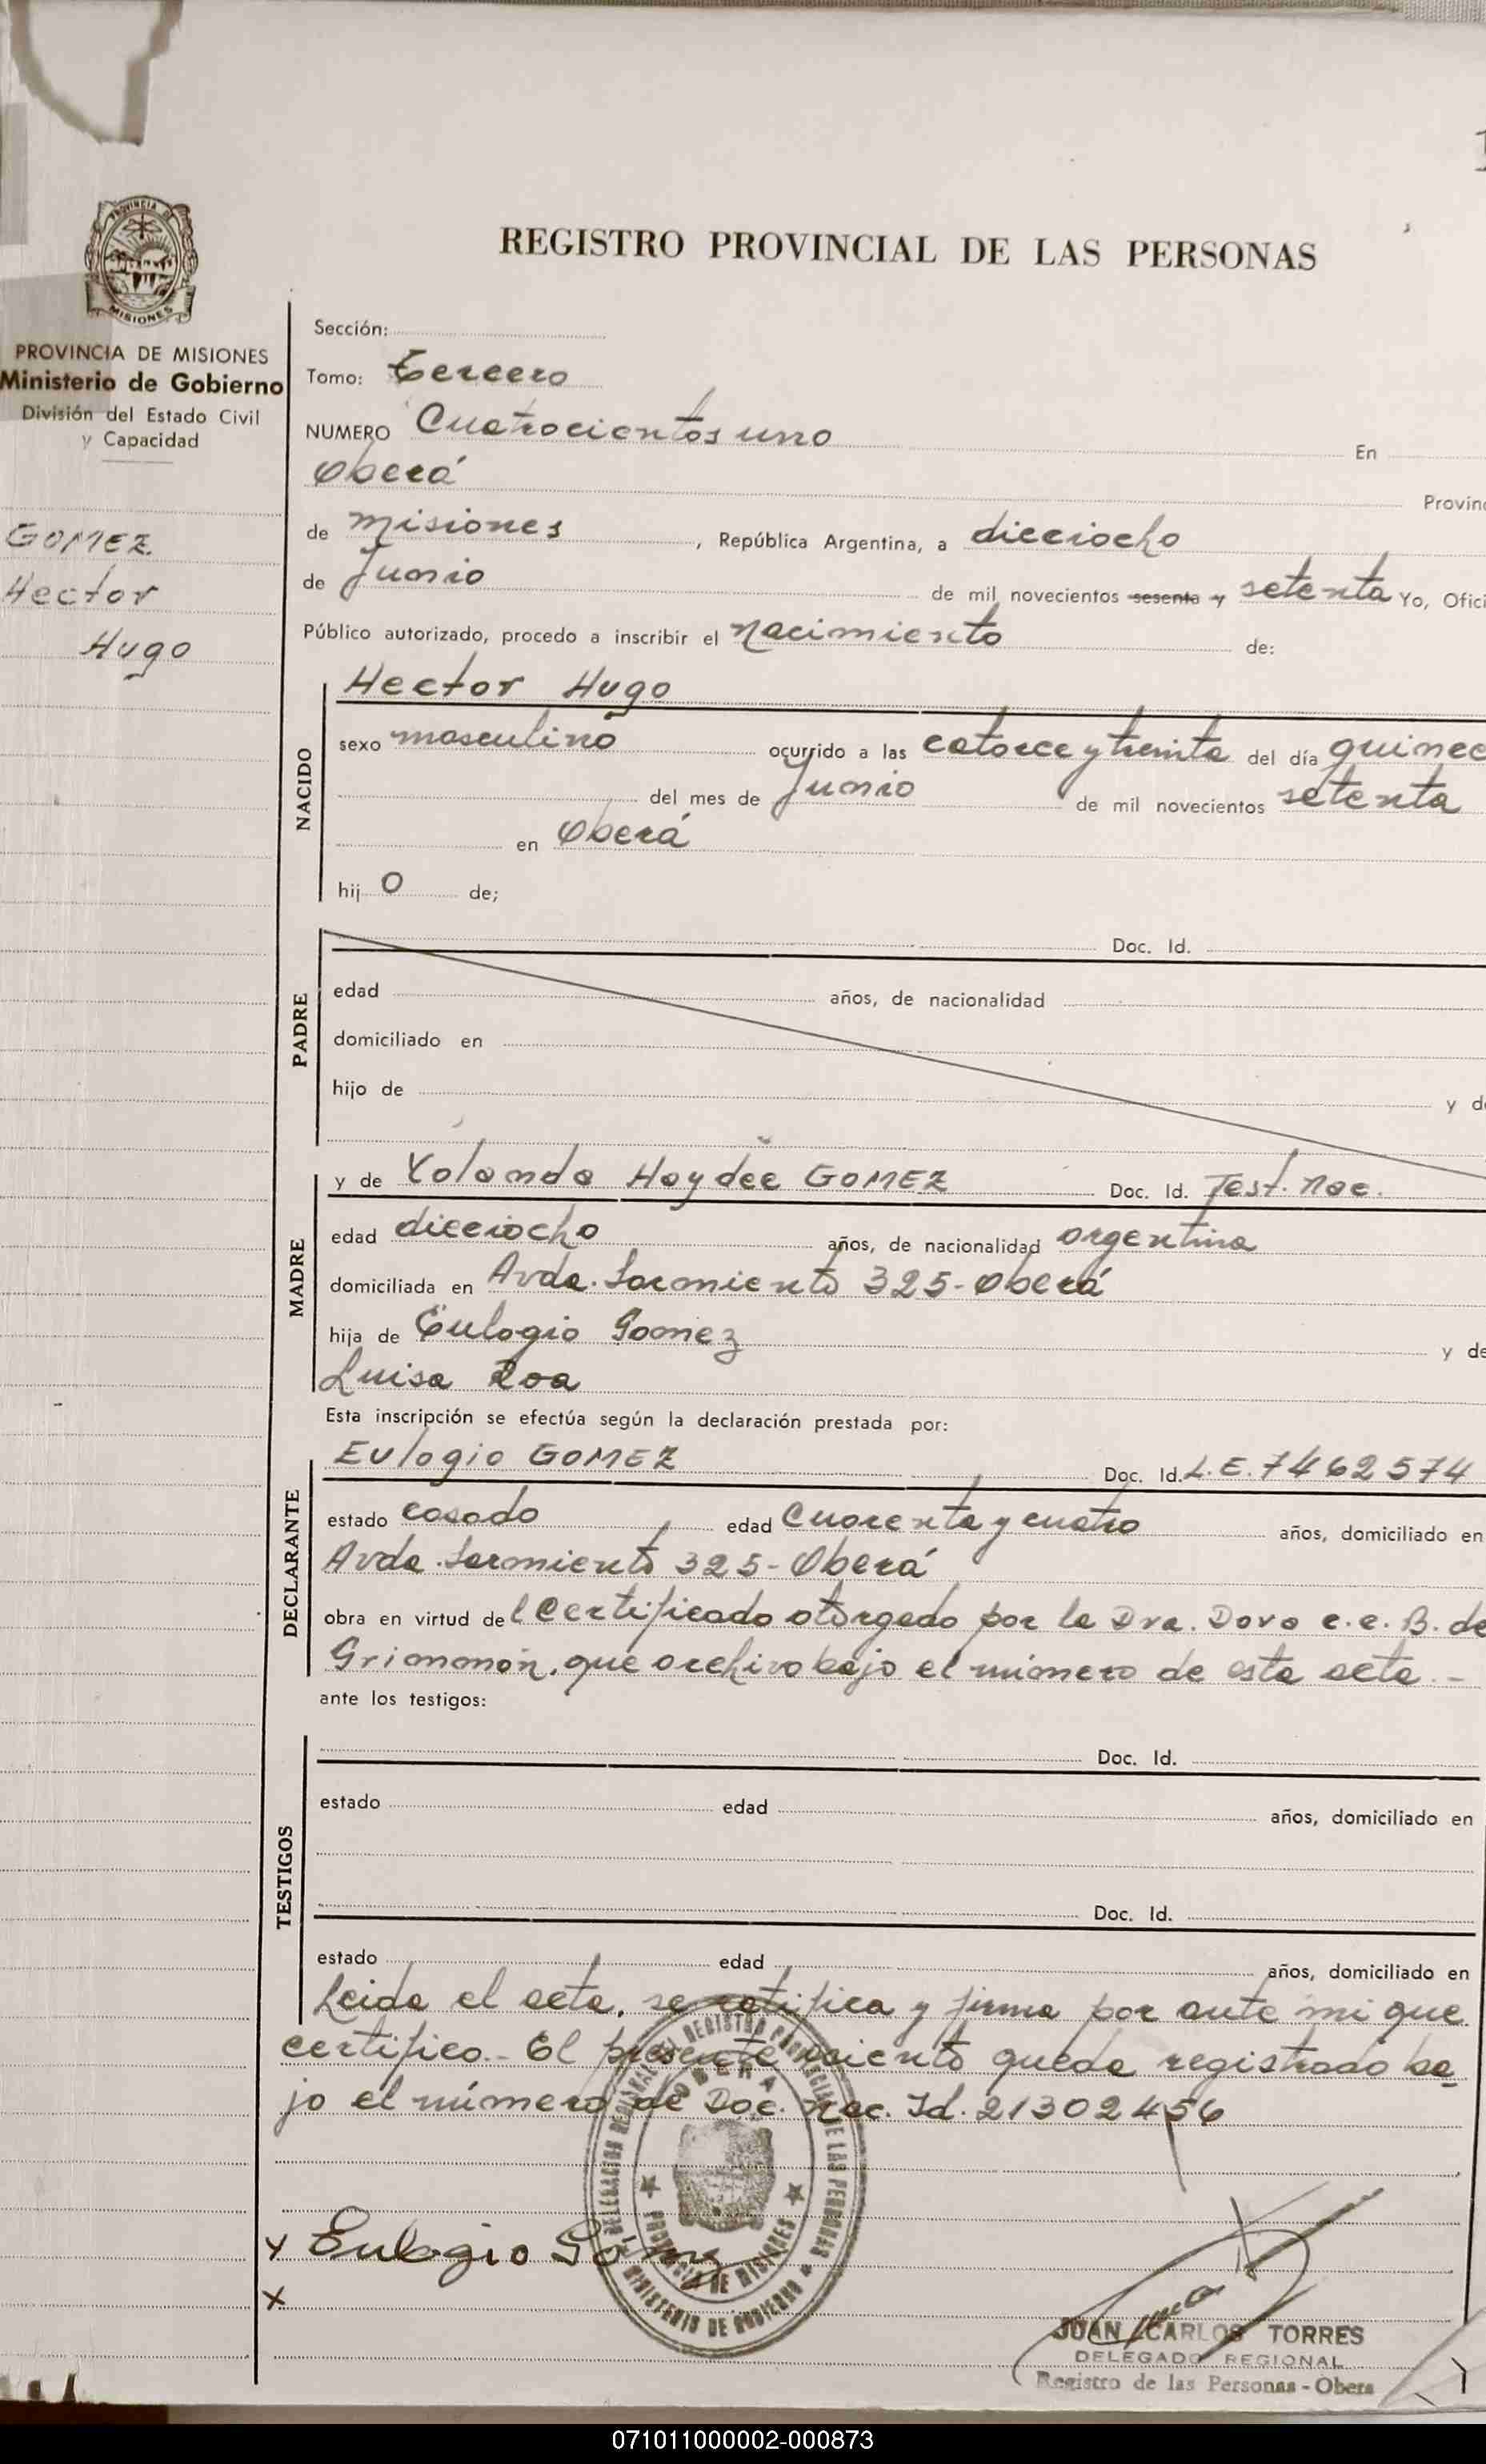 REGISTRO PROVINCIAL DE LAS PERSONAS
PROVINCIA DE MISIONES
Ministerio de Gobierno
División del Estado Civil
y Capacidad
GOMEZ
Hector
Hugo
Sección:
Tomo: tercero
NUMERO Cuatrocientos uno En
Oberá Provinc
de Misiones, República Argentina, a dieciocho
de Junio de mil novecientos sesenta y setenta Yo, Ofici
Público autorizado, procedo a inscribir el nacimiento de:
NACIDO
Hector Hugo
sexo masculino ocurrido a las catorce y treinta del día quince
del mes de Junio de mil novecientos setenta
en Oberá
hijo de;
PADRE
Doc. Id.
edad años, de nacionalidad
domiciliado en
hijo de y de
MADRE
y de Yolanda Haydee GOMEZ Doc. Id. Test. Nac.
edad dieciocho años, de nacionalidad argentina
domiciliada en Avda. Sarmiento 325 - Oberá
hija de Eulogio Gomez y de
Luisa Roa
Esta inscripción se efectúa según la declaración prestada por:
DECLARANTE
Eulogio GOMEZ Doc. Id. L.E. 7462574
estado casado edad Cuarenta y cuatro años, domiciliado en
Avda. Sarmiento 325 - Oberá
obra en virtud del Certificado otorgado por la Dra. Dora c.e. B. de
que archivo bajo el número de esta acta. -
ante los testigos:
TESTIGOS
Doc. Id.
estado edad años, domiciliado en
Doc. Id.
estado edad años, domiciliado en
Leida el acta, se ratifica y firma por ante mi que
certifico.- El presente nacimiento queda registrado ba-
jo el número de Doc. Nac. Id. 21302456
x Eulogio Gómez
x
JUAN CARLOS TORRES
DELEGADO REGIONAL
Registro de las Personas - Obera
071011000002-000873